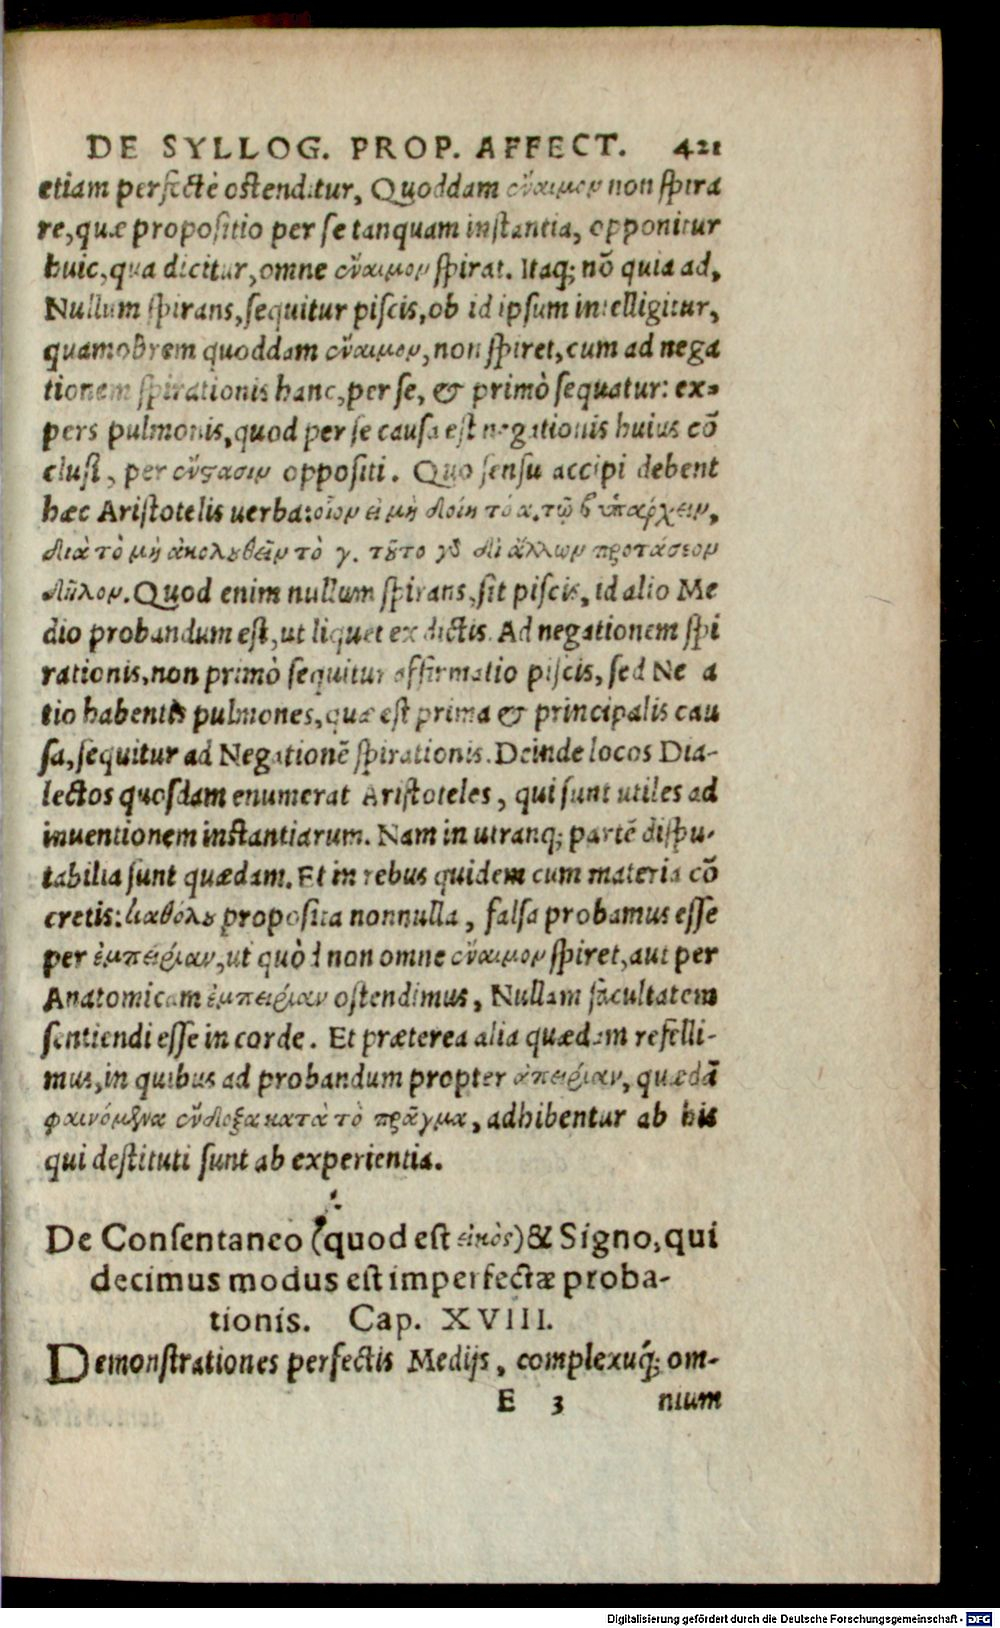 DE SYLLOG. PROP. AFFECT. 421
etiam perfectè ostenditur, Quoddam ἔναιμον non spira
re, quæ propositio per se tanquam instantia, opponitur
huic, qua dicitur, omne ἔναιμον spirat. Itaq; nō quia ad,
Nullum spirans, sequitur piscis, ob id ipsum intelligitur,
quamobrem quoddam ἔναιμον, non spiret, cum ad nega
tionem spirationis hanc, per se, & primò sequatur: ex=
pers pulmonis, quod per se causa est negationis huius cō
clusi, per ἔνστασιν oppositi. Quo sensu accipi debent
hæc Aristotelis uerba: οἷον εἰ μὴ δοίη τὸ α. τῷ β ὑπάρχειν,
διὰ τὸ μὴ ἀκολουθεῖν τὸ γ. τοῦτο γὰρ δι ἄλλων προτάσεων
δῆλον. Quod enim nullum spirans, sit piscis, id alio Me
dio probandum est, ut liquet ex dictis. Ad negationem spi
rationis, non primò sequitur affirmatio piscis, sed Ne a
tio habentis pulmones, quæ est prima & principalis cau
sa, sequitur ad Negationē spirationis. Deinde locos Dia-
lectos quosdam enumerat Aristoteles, qui sunt utiles ad
inuentionem instantiarum. Nam in utranq; partē dispu-
tabilia sunt quædam. Et in rebus quidem cum materia cō
cretis: proposita nonnulla, falsa probamus esse
per ἐμπειρίαν, ut quòd non omne ἔναιμον spiret, aut per
Anatomicam ἐμπειρίαν ostendimus, Nullam facultatem
sentiendi esse in corde. Et præterea alia quædam refelli-
mus, in quibus ad probandum propter ἀπειρίαν, quædā
φαινόμενα ἔνδοξα κατὰ τὸ πρᾶγμα, adhibentur ab his
qui destituti sunt ab experientia.
De Consentaneo (quod est εἰκὸς) & Signo, qui
decimus modus est imperfectæ proba-
tionis. Cap. XVIII.
Demonstrationes perfectis Medijs, complexuq́; om-
E 3 nium
Digitalisierung gefördert durch die Deutsche Forschungsgemeinschaft - DFG